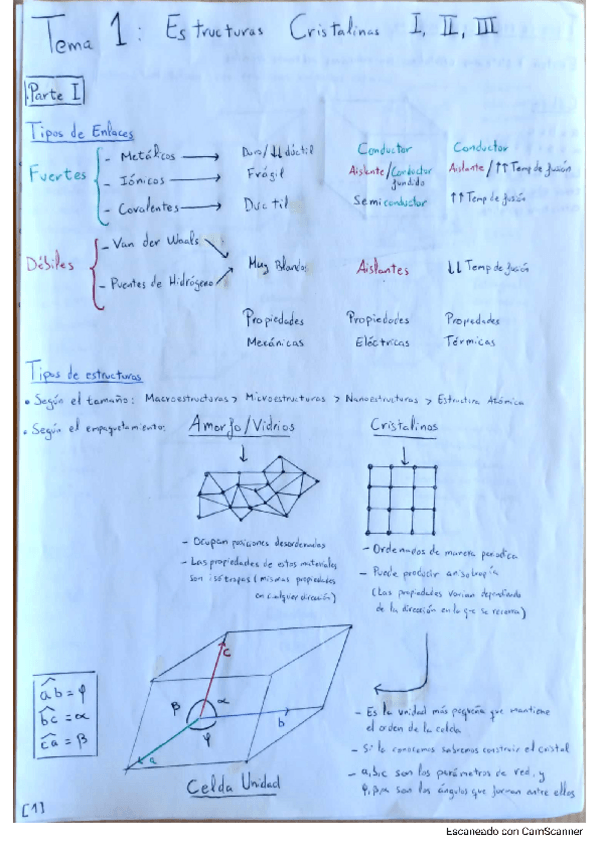 Tema 1: Estructuras Cristalinas I, II, III
Parte I
Tipos de Enlaces
Fuertes
- Metálicos → Duro/↓↓ dúctil Conductor Conductor
- Iónicos → Frágil Aislante/Conductor fundido Aislante/↑↑ Temp de fusión
- Covalentes → Ductil Semiconductor ↑↑ Temp de fusión
Débiles
- Van der Waals
- Puentes de Hidrógeno
Muy Blandos Aislantes ↓↓ Temp de fusión
Propiedades Propiedades Propiedades
Mecánicas Eléctricas Térmicas
Tipos de estructuras
• Según el tamaño: Macroestructuras > Microestructuras > Nanoestructuras > Estructura Atómica
• Según el empaquetamiento: Amorfo/Vidrios Cristalinos
- Ocupan posiciones desordenadas
- Las propiedades de estos materiales
son isótropas (mismas propiedades
en cualquier dirección)
- Ordenados de manera periodica
- Puede producir anisotropía
(Las propiedades varian dependiendo
de la dirección en la que se recorra)
c
β α
b
φ
a
Celda Unidad
ab = φ
bc = α
ca = β
- Es la unidad más pequeña que mantiene
el orden de la celda
- Si la conocemos sabremos construir el cristal
- a, b, c son los parámetros de red, y
φ, β, α son los ángulos que forman entre ellos
[1]
Escaneado con CamScanner